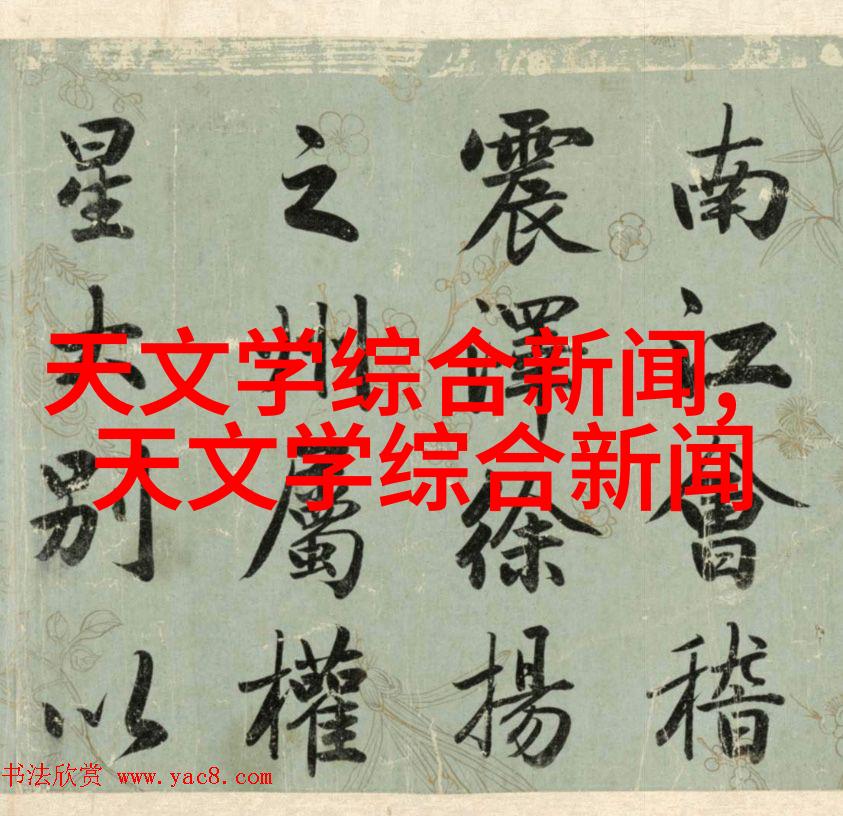 南江會稽
震澤徐揚
之州屬權
星土別以
天文学综合新闻,
天文学综合新闻
书法欣赏 www.yac8.com